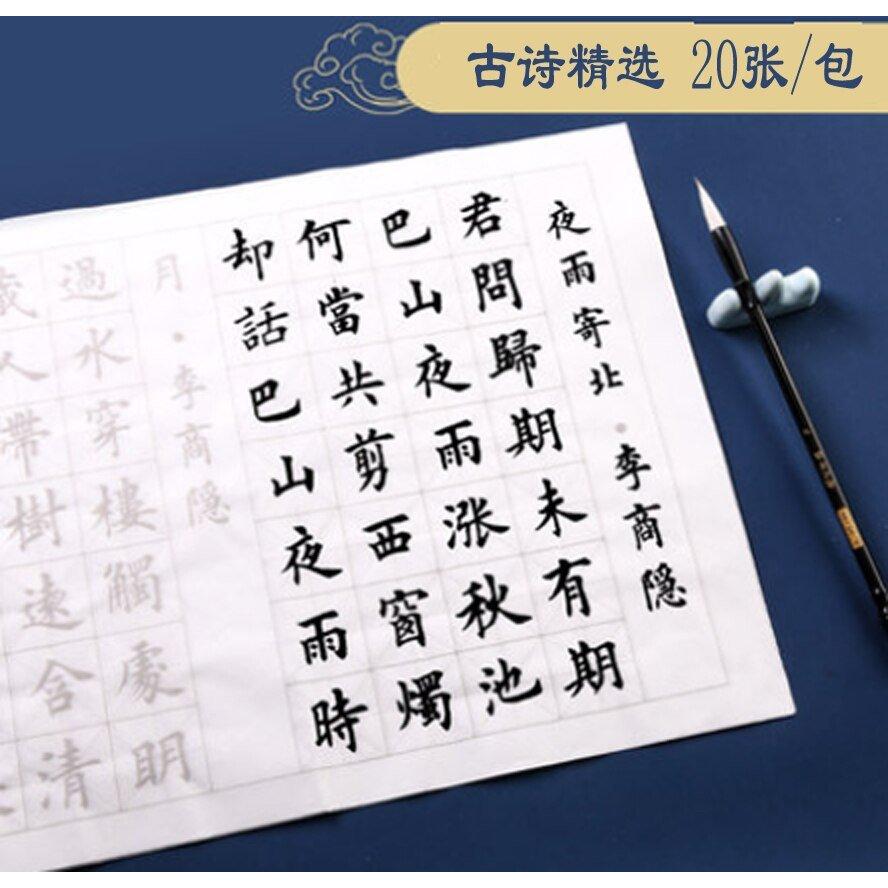 古诗精选 20张/包
夜雨寄北·李商隱
君問歸期未有期
巴山夜雨涨秋池
何當共剪西窗燭
却話巴山夜雨時
月·李商隱
過水穿樓觸處明
藏人帶樹遠含清